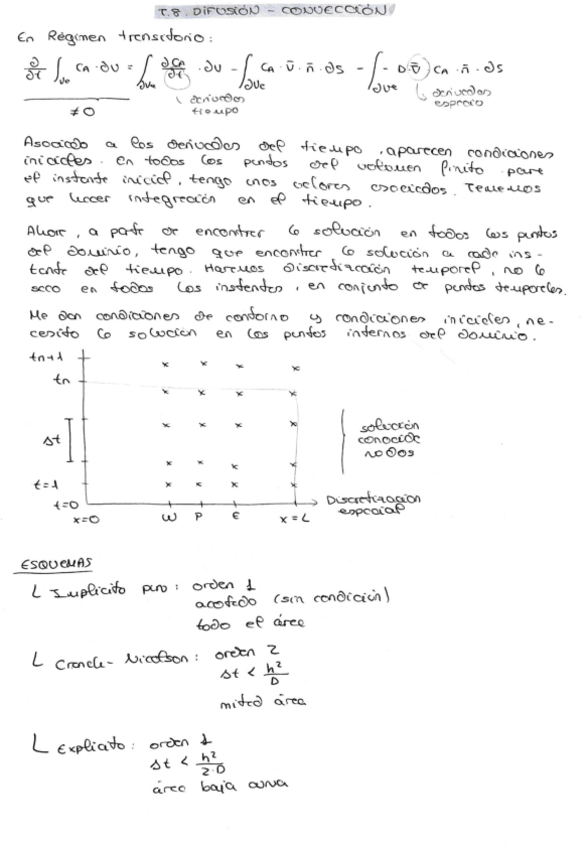 T.8. DIFUSIÓN - CONVECCIÓN
En Régimen transitorio:
∂/∂t ∫Ve CA · dV = ∫∂Ve ∂CA/∂t · dV - ∫∂Ve CA · v̄ · n̄ · dS - ∫∂Ve - D ∇̄ CA · n̄ · dS
≠ 0
derivadas
tiempo
derivadas
espacio
Asociado a las derivadas del tiempo, aparecen condiciones
iniciales. En todos los puntos del volumen finito para
el instante inicial, tengo unos valores asociados. Tenemos
que hacer integración en el tiempo.
Ahora, a parte de encontrar la solución en todos los puntos
del dominio, tengo que encontrar la solución a cada ins-
tante del tiempo. Haremos Discretización temporal, no lo
saco en todos los instantes, en conjunto de puntos temporales.
Me dan condiciones de contorno y condiciones iniciales, ne-
cesito la solución en los puntos internos del dominio.
tn+1
tn
Δt
t=1
t=0
x=0 W P E x=L
Discretización
espacial
solución
conocida
nodos
ESQUEMAS
Implícito puro: orden 1
acotado (sin condición)
todo el área
Cranck-Nicolson: orden 2
Δt < h²/D
mitad área
Explícito: orden 1
Δt < h²/2·D
área baja curva